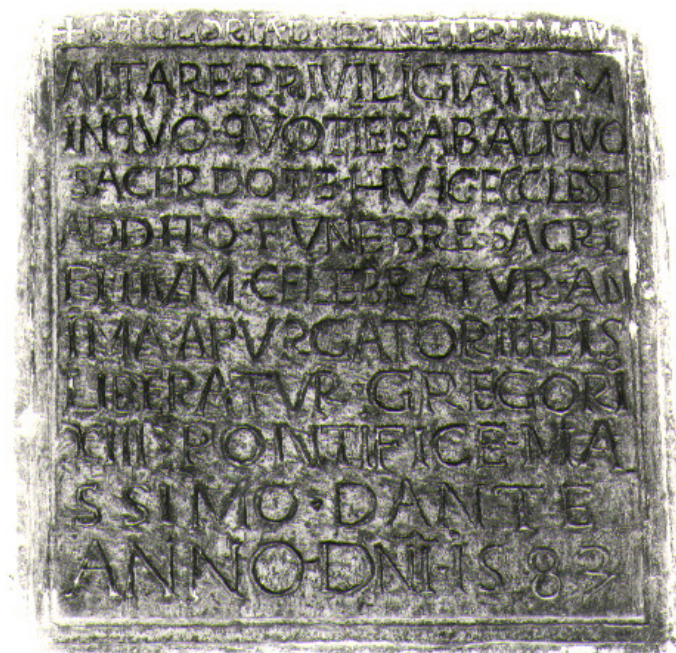 ALTARE·PRIVILIGIATVM
INQVO·QVOTIES·AB ALIQVO
SACERDOTE HVIC ECCLESE
ADDITO·FVNEBRE·SACRI
FITIVM·CELEBRATVR·AN
IMA·APVRGATORII
LIBERATVR·GREGORI
XIII·PONTIFICE·MA
SSIMO·DANTE
ANNO·DNĪ·1583